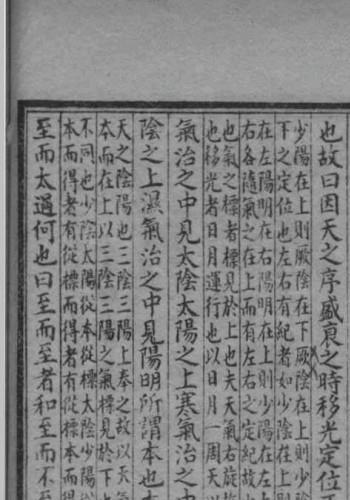 也故曰因天之序盛衰之時移光定位正
少陽在上則厥陰在下厥陰在上則少
下之定位也左右有紀者如少陰在上則
在左陽明在右陽明在上則少陽在左
右各隨氣之在上而有左右之定紀故
也氣之標者標見於上也夫天氣右旋
也移光者日月運行也以日月一周天以
氣治之中見太陰太陽之上寒氣治之中
陰之上濕氣治之中見陽明所謂本也本
天之陰陽也三陰三陽上奉之故以天
本而在上以三陰三陽之氣標見於下
不同也少陰太陽從本從標太陰少陽從
本而得者有從標而得者有從
至而太過何也曰至而至者和至而不至